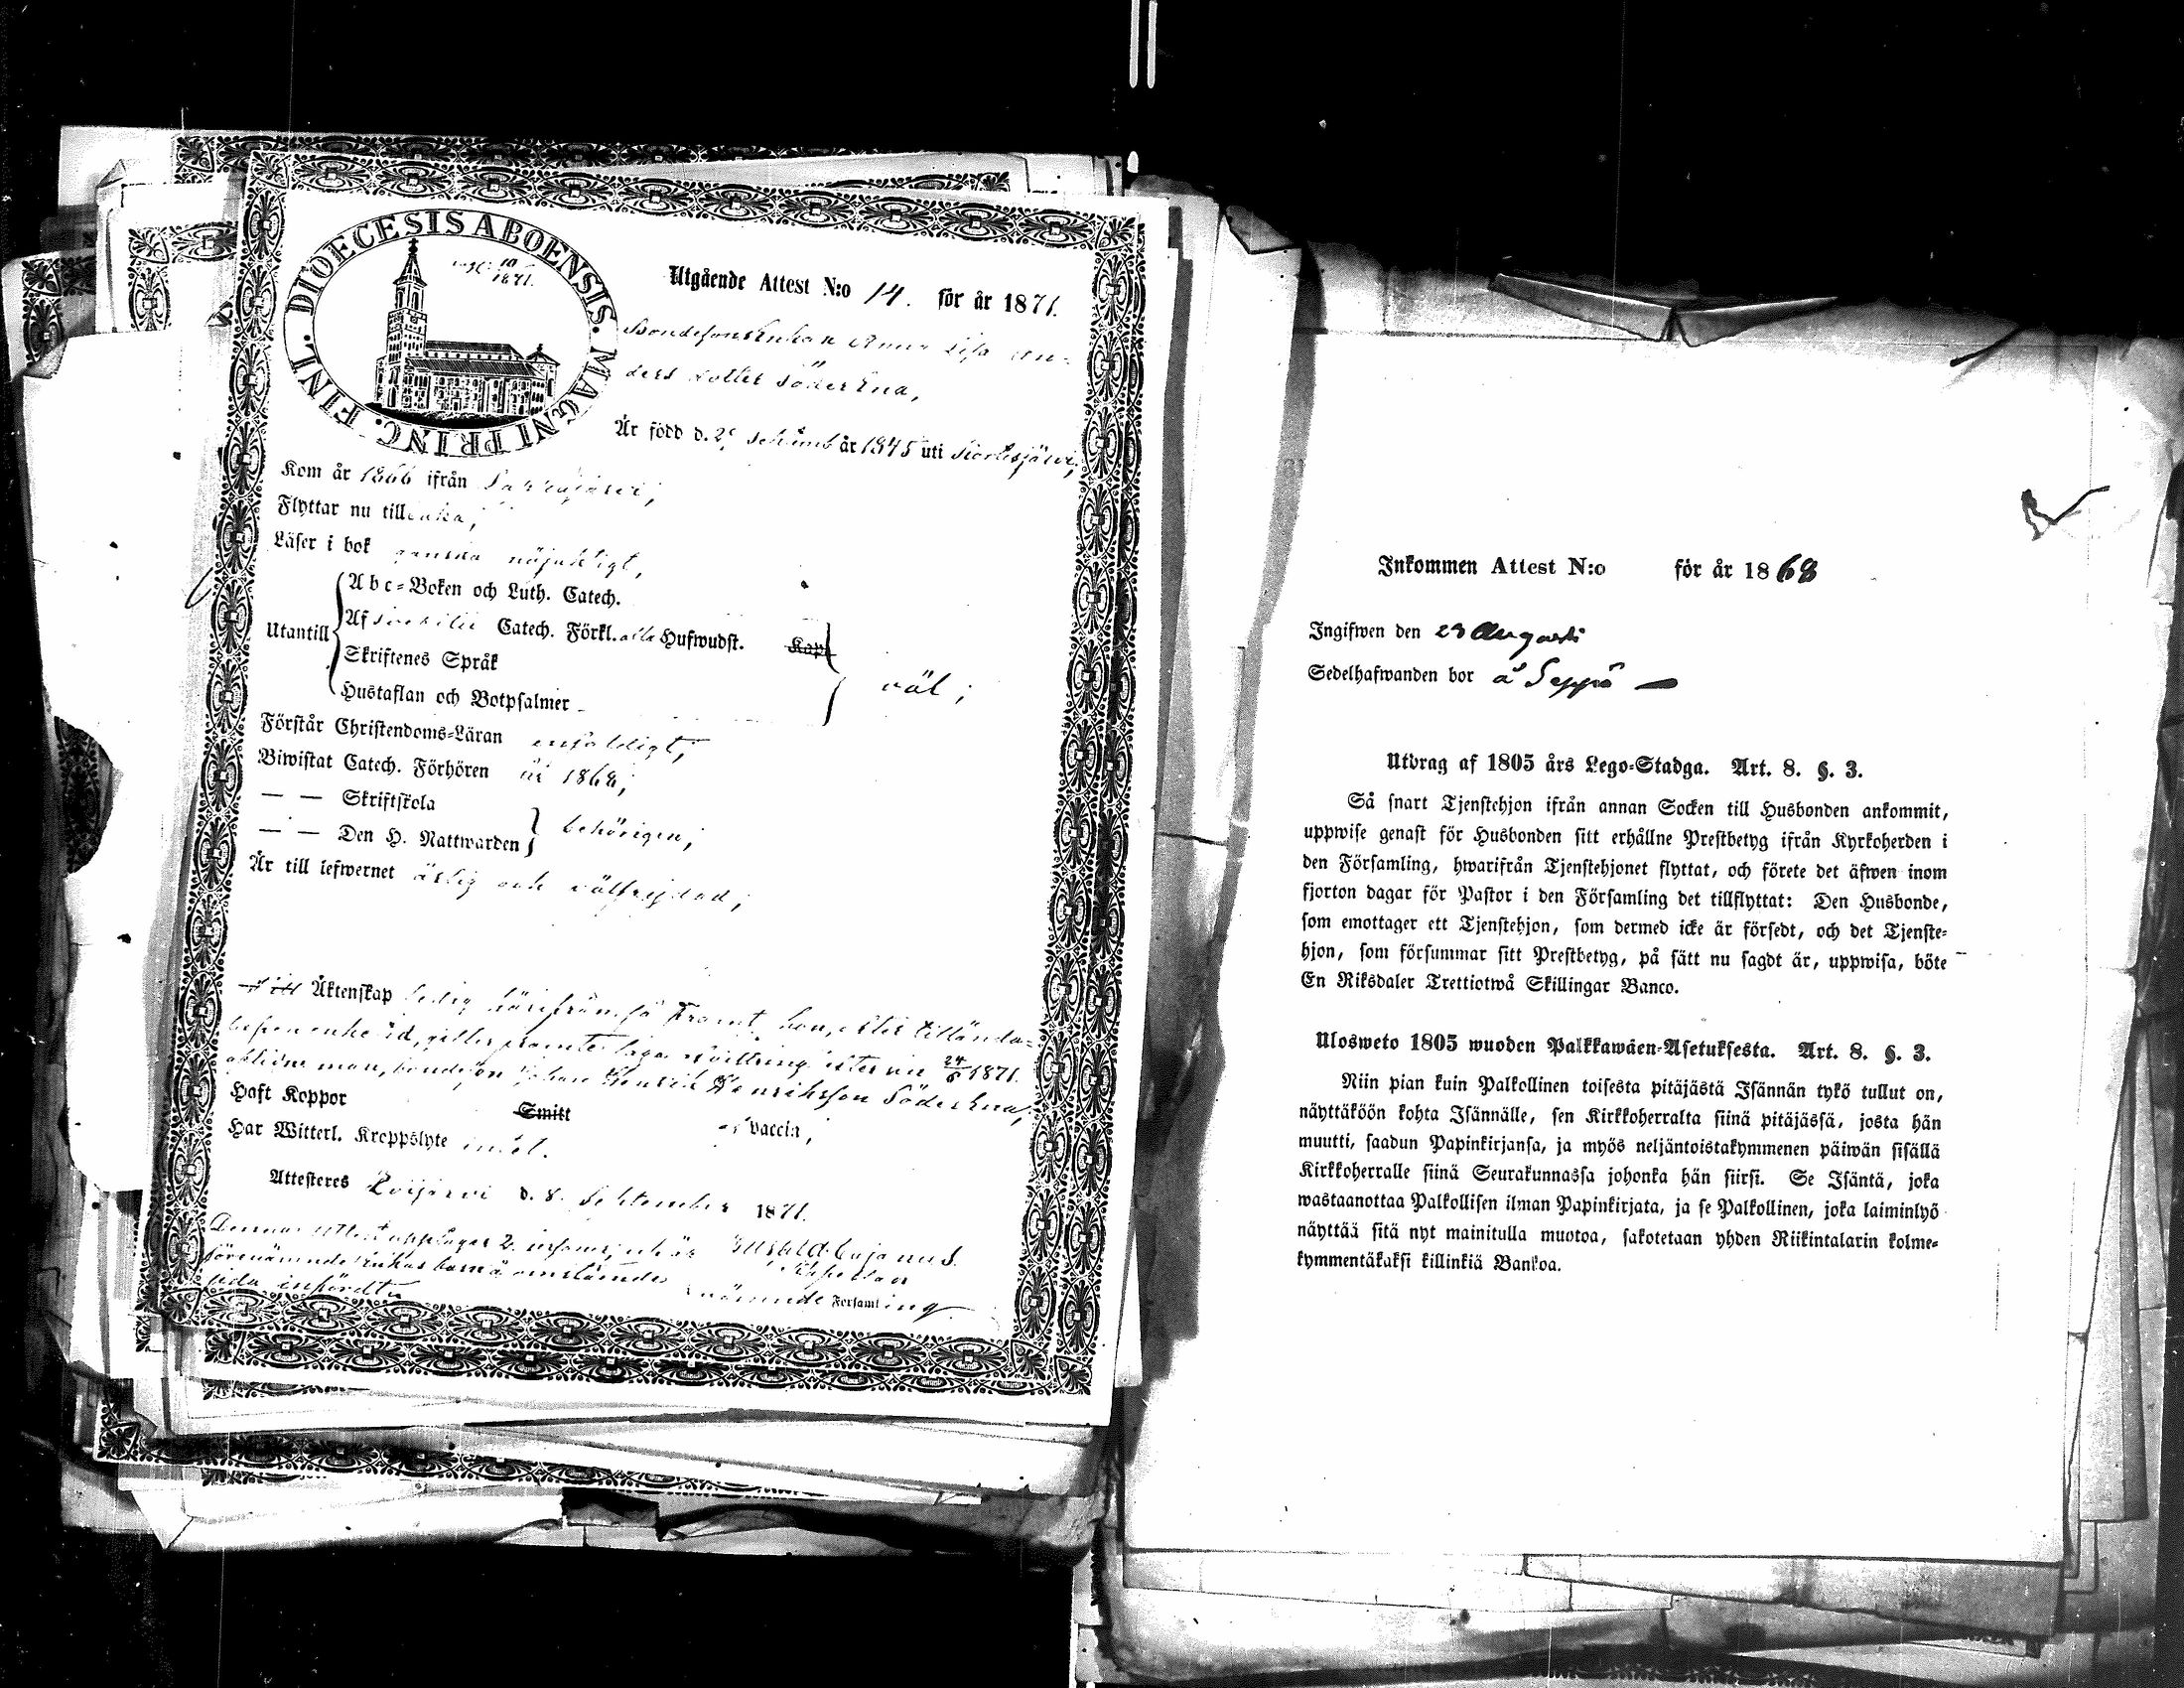 DIOECESIS ABOENSIS. MAGNI PRINC. FINL.
10
1871.
Utgående Attest N:o 14. för år 1871.
Bondesonsenkan Anna Lisa An-
ders dotter Söderkna,
Är född d. Septemb år 1845 uti
Kom år 1866 ifrån
Flyttar nu till
Läser i bok ganska nöjaktigt,
Utantill
Abc-Boken och Luth. Catech.
Af Svebilii Catech. Förkl. alla Hufwudst. Kap
Skriftenes Språk
Hustaflan och Botpsalmer
väl;
Förstår Christendoms-Läran enfaldigt;
Biwistat Catech. Förhören år 1868;
— — Skriftskola
— — Den H. Nattwarden
behörigen;
Är till lefwernet ärlig och välfrejdad;
Till Äktenskap ledig härifrån, så framt hon, efter
aflidne man, bondeson Johan Henrik Henriksson Söderkna, 24/6 1871.
Haft Koppor Smitt vaccin,
Har Witterl. Kroppslyte intet.
Attesteres Loijärvi d. 8. September 1871.
Denna attest upptager 2. och är
förenämnde enkas barn å omstående
sida infördt.
Gustaf Cajanus.
Kapellan
nämnde Församling
Inkommen Attest N:o för år 1868
Ingifwen den 23 Augusti
Sedelhafwanden bor å Seppä —
Utdrag af 1805 års Lego-Stadga. Art. 8. §. 3.
Så snart Tjenstehjon ifrån annan Socken till Husbonden ankommit,
uppwise genast för Husbonden sitt erhållne Prestbetyg ifrån Kyrkoherden i
den Församling, hwarifrån Tjenstehjonet flyttat, och förete det äfwen inom
fjorton dagar för Pastor i den Församling det tillflyttat: Den Husbonde,
som emottager ett Tjenstehjon, som dermed icke är försedt, och det Tjenste-
hjon, som försummar sitt Prestbetyg, på sätt nu sagdt är, uppwisa, böte
En Riksdaler Trettiotwå Skillingar Banco.
Ulosweto 1805 wuoden Palkkawäen-Asetuksesta. Art. 8. §. 3.
Niin pian kuin Palkollinen toisesta pitäjästä Isännän tykö tullut on,
näyttäköön kohta Isännälle, sen Kirkkoherralta siinä pitäjässä, josta hän
muutti, saadun Papinkirjansa, ja myös neljäntoistakymmenen päiwän sisällä
Kirkkoherralle siinä Seurakunnassa johonka hän siirsi. Se Isäntä, joka
wastaanottaa Palkollisen ilman Papinkirjata, ja se Palkollinen, joka laiminlyö
näyttää sitä nyt mainitulla muotoa, sakotetaan yhden Riikintalarin kolme-
kymmentäkaksi killinkiä Bankoa.